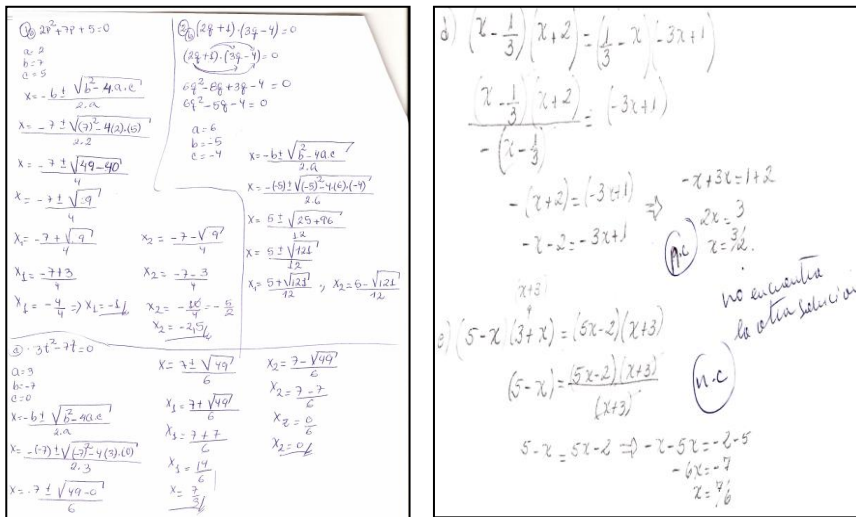 1) b) 2p²+7p+5=0
a=2
b=7
c=5
x = -b ± √(b²-4.a.c) / 2.a
x = -7 ± √((7)²-4(2).(5)) / 2.2
x = -7 ± √(49-40) / 4
x = -7 ± √9 / 4
x₁ = -7+√9 / 4    x₂ = -7-√9 / 4
x₁ = -7+3 / 4    x₂ = -7-3 / 4
x₁ = -4/4 => x₁ = -1    x₂ = -10/4 = -5/2
x₂ = -2,5
2) b) (2q+1).(3q-4)=0
(2q+1).(3q-4)=0
6q²-8q+3q-4=0
6q²-5q-4=0
a=6
b=-5
c=-4
x = -b ± √(b²-4a.c) / 2.a
x = -(-5) ± √((-5)²-4.(6).(-4)) / 2.6
x = 5 ± √(25+96) / 12
x = 5 ± √121 / 12
x₁ = 5+√121 / 12 , x₂ = 5-√121 / 12
a) 3t²-7t=0
a=3
b=-7
c=0
x = -b ± √(b²-4a.c) / 2.a
x = -(-7) ± √((-7)²-4(3).(0)) / 2.3
x = 7 ± √(49-0) / 6
x = 7 ± √49 / 6
x₁ = 7+√49 / 6
x₁ = 7+7 / 6
x₁ = 14/6
x = 7/3
x₂ = 7-√49 / 6
x₂ = 7-7 / 6
x₂ = 0/6
x₂ = 0
d) (x - 1/3)(x+2) = (1/3 - x)(-3x+1)
(x - 1/3)(x+2) / -(x - 1/3) = (-3x+1)
-(x+2) = (-3x+1) => -x+3x = 1+2
-x-2 = -3x+1    2x = 3
x = 3/2.
n.c
no encuentra
la otra solución
(x+3)
e) (5-x)(3+x) = (5x-2)(x+3)
(5-x) = (5x-2)(x+3) / (x+3)
n.c
5-x = 5x-2 => -x-5x = -2-5
-6x = -7
x = 7/6